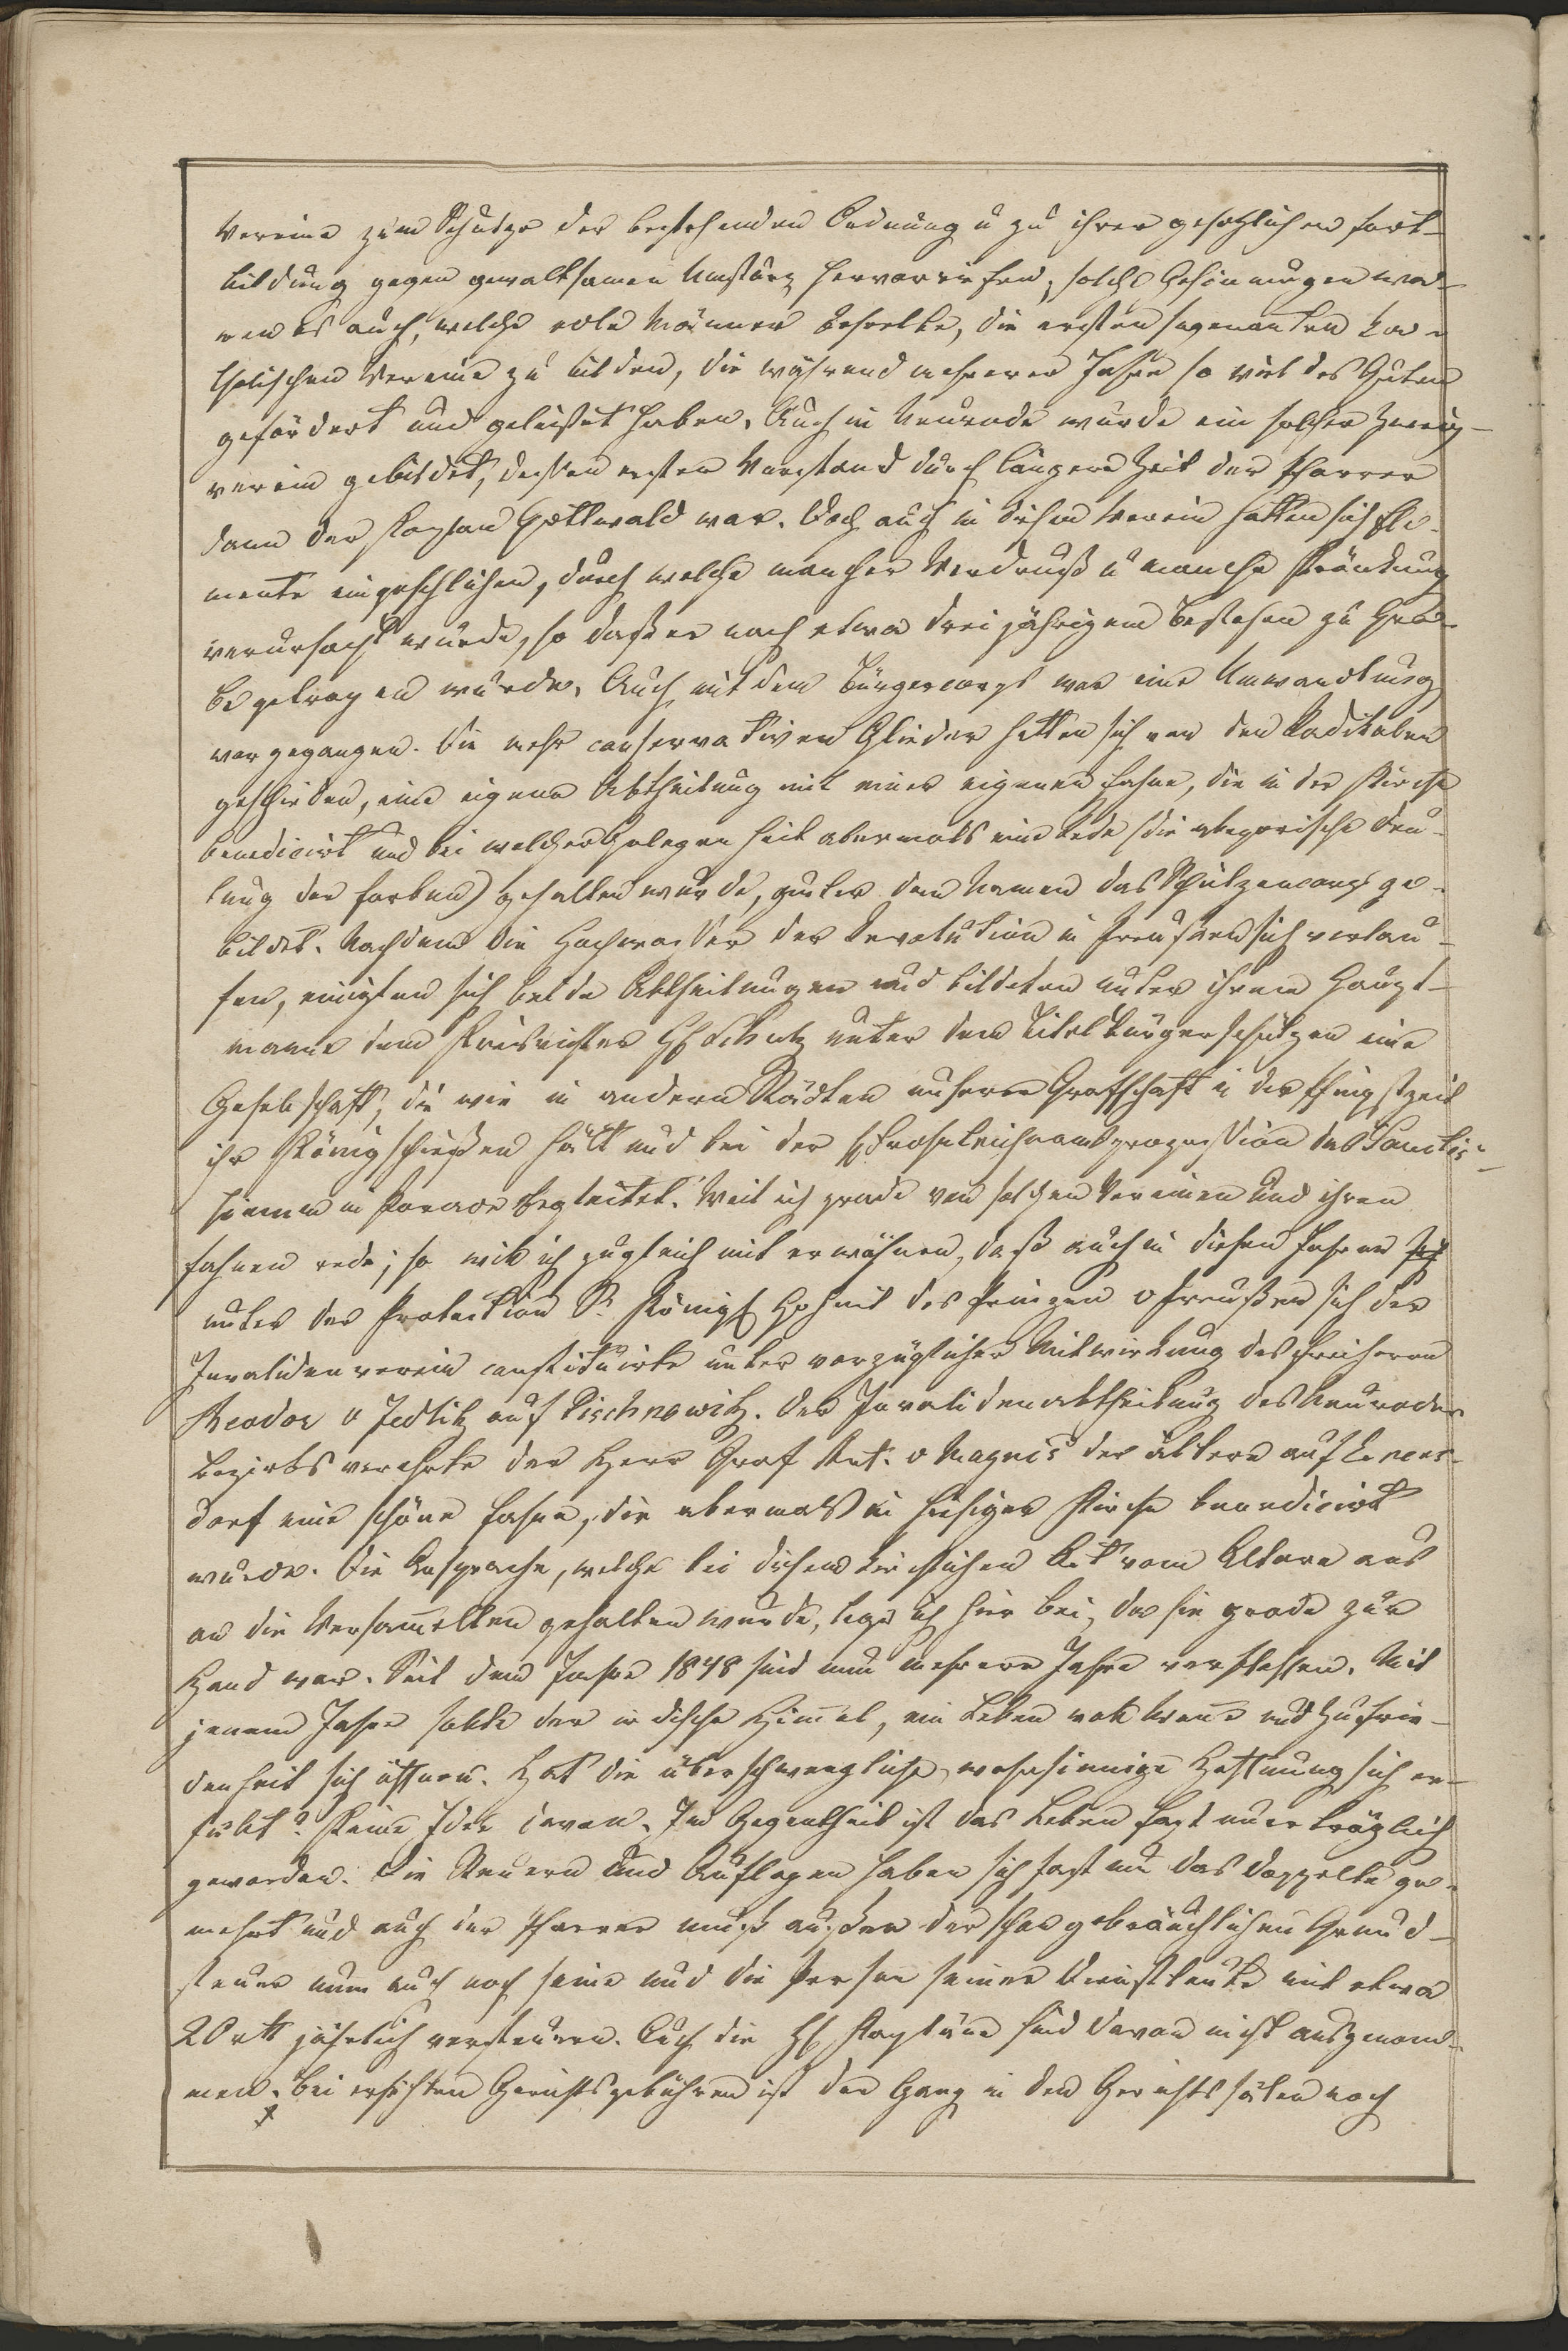 Vereine zum Schutze der bestehenden Ordnung u zu ihrer gesetzlichen Fort-
bildung gegen gewaltsamen Umsturz hervorriefen, solche Gesinnungen wa-
ren es auch, welche edle Männer beseelte, die ersten sogenanten ka-
tholischen Vereine zu bilden, die während mehrerer Jahre so viel des Guten
gefördert und geleistet haben. Auch in Neurode wurde ein solcher Zweig-
verein gebildet, dessen erster Vorstand durch längere Zeit der Pfarrer
dann der Kaplan Gottwald war. Doch auch in diesen Verein hatten sich Ele-
mente eingeschlichen, durch welche mancher Verdruß u manche Kränkung
verursacht wurde, so daß er nach etwa dreijährigem Bestehen zu Gra-
be getragen wurde. Auch mit dem Bürgercorps war eine Umwandlung
vorgegangen. Die mehr conservativen Glieder hatten sich von den Radikalen
geschieden, eine eigene Abtheilung mit einer eigenen Fahne, die in der Kirche
benedicirt und bei welcher Gelegenheit abermals eine Rede (die allegorische Deu-
tung der Farben) gehalten wurde, unter dem Namen das Schützencorps ge-
bildet. Nachdem die Hochwasser der Revolution in Preußen sich verlau-
fen, einigten sich beide Abtheilungen und bildeten unter ihrem Haupt-
manne dem Kreisrichter H Scholz unter dem Titel Bürgerschützen eine
Gesellschaft, die wie in andern Städten unserer Grafschaft in der Pfingstzeit
ihr Königschießen hält und bei der Frohnleichnamsprozession das Sanctis-
simum in Parade begleitet. Weil ich grade von solchen Vereinen und ihren
Fahnen rede, so will ich zugleich mit erwähnen, daß auch in diesen Jahren sich
unter der Protektion Sr. Königl Hoheit des Prinzen v Preußen sich der
Invalidenverein constituirte unter vorzüglicher Mitwirkung des Freiherrn
Theodor v Zedlitz auf Pischkowitz. Der Invalidenabtheilung des Neuroder
Bezirks verehrte der Herr Graf Ant. v Magnis der ältere auf Eckers-
dorf eine schöne Fahne, die abermals in hiesiger Kirche benedicirt
wurde. Die Ansprache, welche bei diesem kirchlichen Akt vom Altare aus
an die Versam̄elten gehalten wurde, lege ich hier bei, da sie grade zur
Hand war. Seit dem Jahre 1848 sind nun mehrere Jahre verflossen. Mit
jenem Jahre sollte der irdische Him̄el, ein Leben voll Won̄e und Zufrie-
denheit sich öffnen. Hat die überschwengliche, wahnsinnige Hoffnung sich er-
füllt? Keine Idee davon. Im Gegentheil ist das Leben fast unerträglich
geworden. Die Steuern und Auflagen haben sich fast um das Doppelte ge-
mehrt und auch der Pfarrer muß außer der schon gebräuchlichen Grund-
steuer nun auch noch seine und die Person seiner Dienstleute mit etwa
20 rtl jährlich versteuern. Auch die H Kapläne sind davon nicht ausgenom-
men. Bei erhöhten Gerichtsgebühren ist der Gang in den Gerichtssälen noch